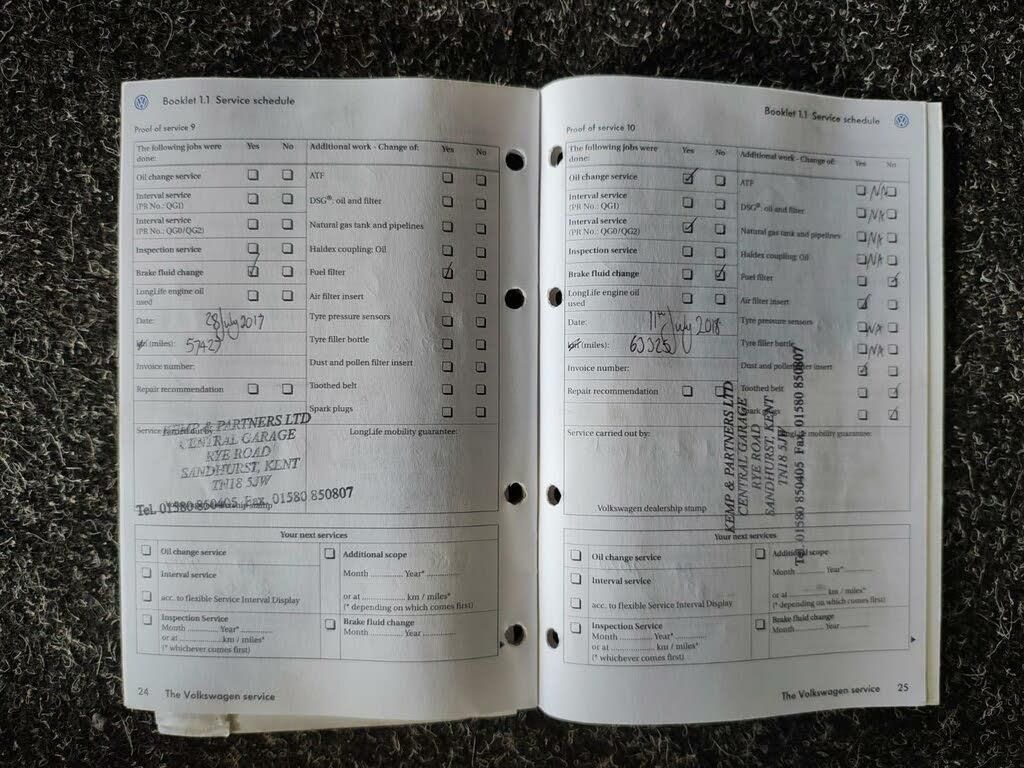 Booklet 1.1 Service schedule
Proof of service 9
The following jobs were done: Yes No
Oil change service
Interval service
(PR No.: QG1)
Interval service
(PR No.: QG0/QG2)
Inspection service
Brake fluid change
LongLife engine oil
used
Date: 28 July 2017
km (miles): 57427
Invoice number:
Repair recommendation
Additional work - Change of: Yes No
ATF
DSG®: oil and filter
Natural gas tank and pipelines
Haldex coupling: Oil
Fuel filter
Air filter insert
Tyre pressure sensors
Tyre filler bottle
Dust and pollen filter insert
Toothed belt
Spark plugs
Service carried out by:
KEMP & PARTNERS LTD
CENTRAL GARAGE
RYE ROAD
SANDHURST, KENT
TN18 5JW
Tel. 01580 850405 Fax. 01580 850807
LongLife mobility guarantee:
Your next services
Oil change service
Interval service
acc. to flexible Service Interval Display
Inspection Service
Month Year*
or at km / miles*
(* whichever comes first)
Additional scope
Month Year*
or at km / miles*
(* depending on which comes first)
Brake fluid change
Month Year
24 The Volkswagen service
Booklet 1.1 Service schedule
Proof of service 10
The following jobs were
done: Yes No
Oil change service
Interval service
(PR No.: QG1)
Interval service
(PR No.: QG0/QG2)
Inspection service
Brake fluid change
LongLife engine oil
used
Date: 11th July 2018
km (miles): 63325
Invoice number:
Repair recommendation
Additional work - Change of: Yes No
ATF NA
DSG®: oil and filter NA
Natural gas tank and pipelines NA
Haldex coupling: Oil NA
Fuel filter
Air filter insert
Tyre pressure sensors NA
Tyre filler bottle NA
Dust and pollen filter insert
Toothed belt
Spark plugs
Service carried out by:
LongLife mobility guarantee:
KEMP & PARTNERS LTD
CENTRAL GARAGE
RYE ROAD
SANDHURST, KENT
TN18 5JW
Tel. 01580 850405 Fax. 01580 850807
Volkswagen dealership stamp
Your next services
Oil change service
Interval service
acc. to flexible Service Interval Display
Inspection Service
Month Year*
or at km / miles*
(* whichever comes first)
Additional scope
Month Year*
or at km / miles*
(* depending on which comes first)
Brake fluid change
Month Year
The Volkswagen service 25